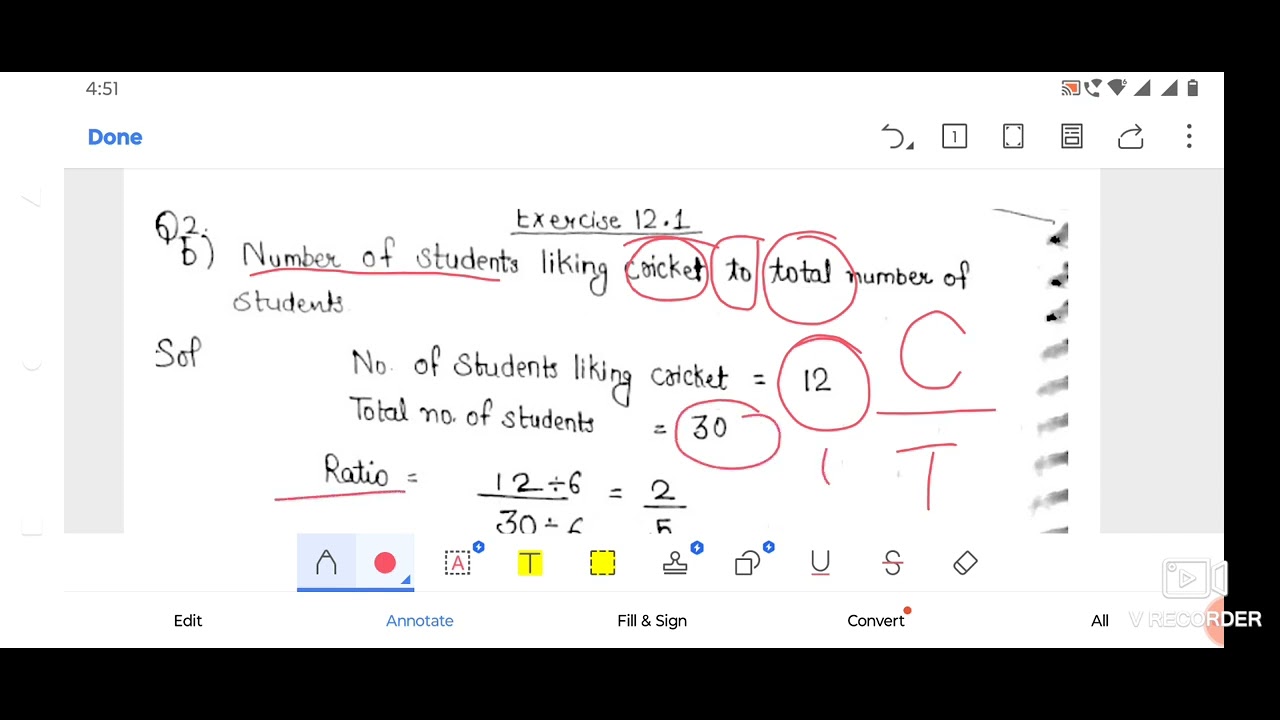 4:51
Done
1
Exercise 12.1
Q2.
b) Number of students liking cricket to total number of
students.
Sol
No. of Students liking cricket = 12
C
Total no. of students = 30
T
Ratio = 12÷6 = 2
30÷6 5
A T U S
Edit Annotate Fill & Sign Convert All
V RECORDER